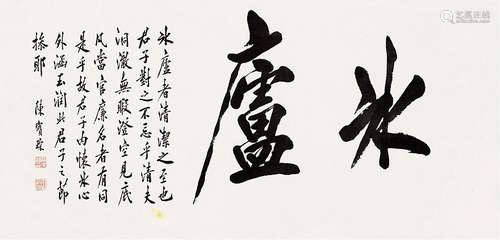 冰廬
冰廬者清潔之至也
君子對之不忘乎清夫
洞澈無瑕澄空見底
凡當官廉名者有同
是乎故君子內懷冰心
外涵玉潤此君子之節
操耶 陳